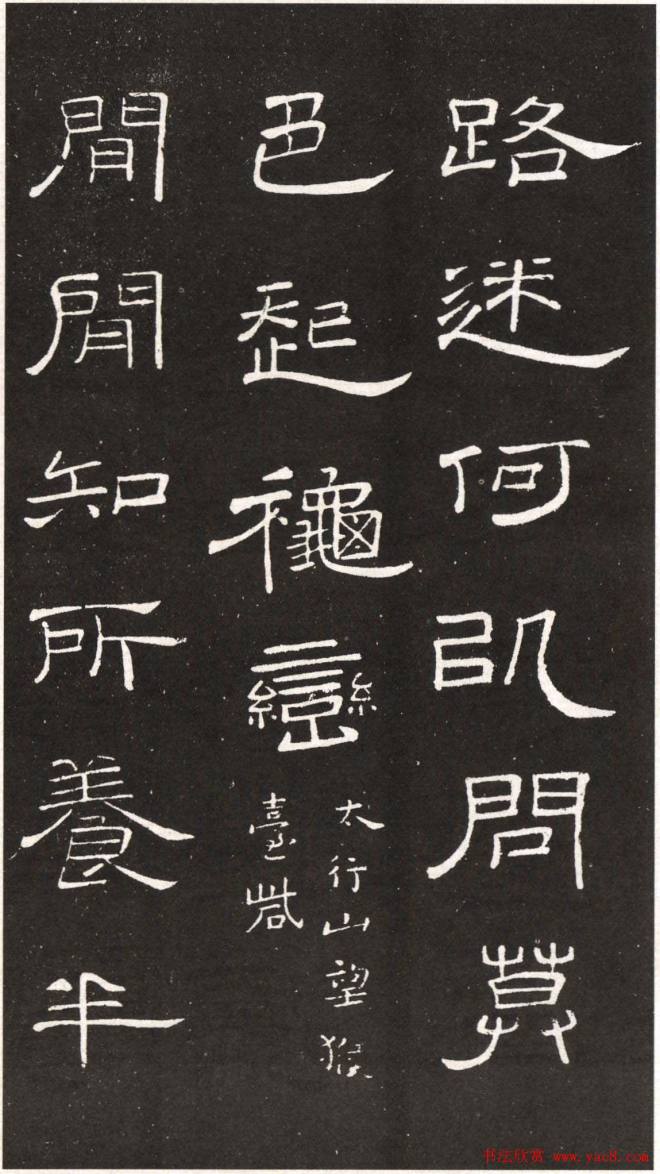 路迷何問莫
色起龝巒
太行山望猴
臺
間閒知所養半
书法欣赏 www.yac8.com